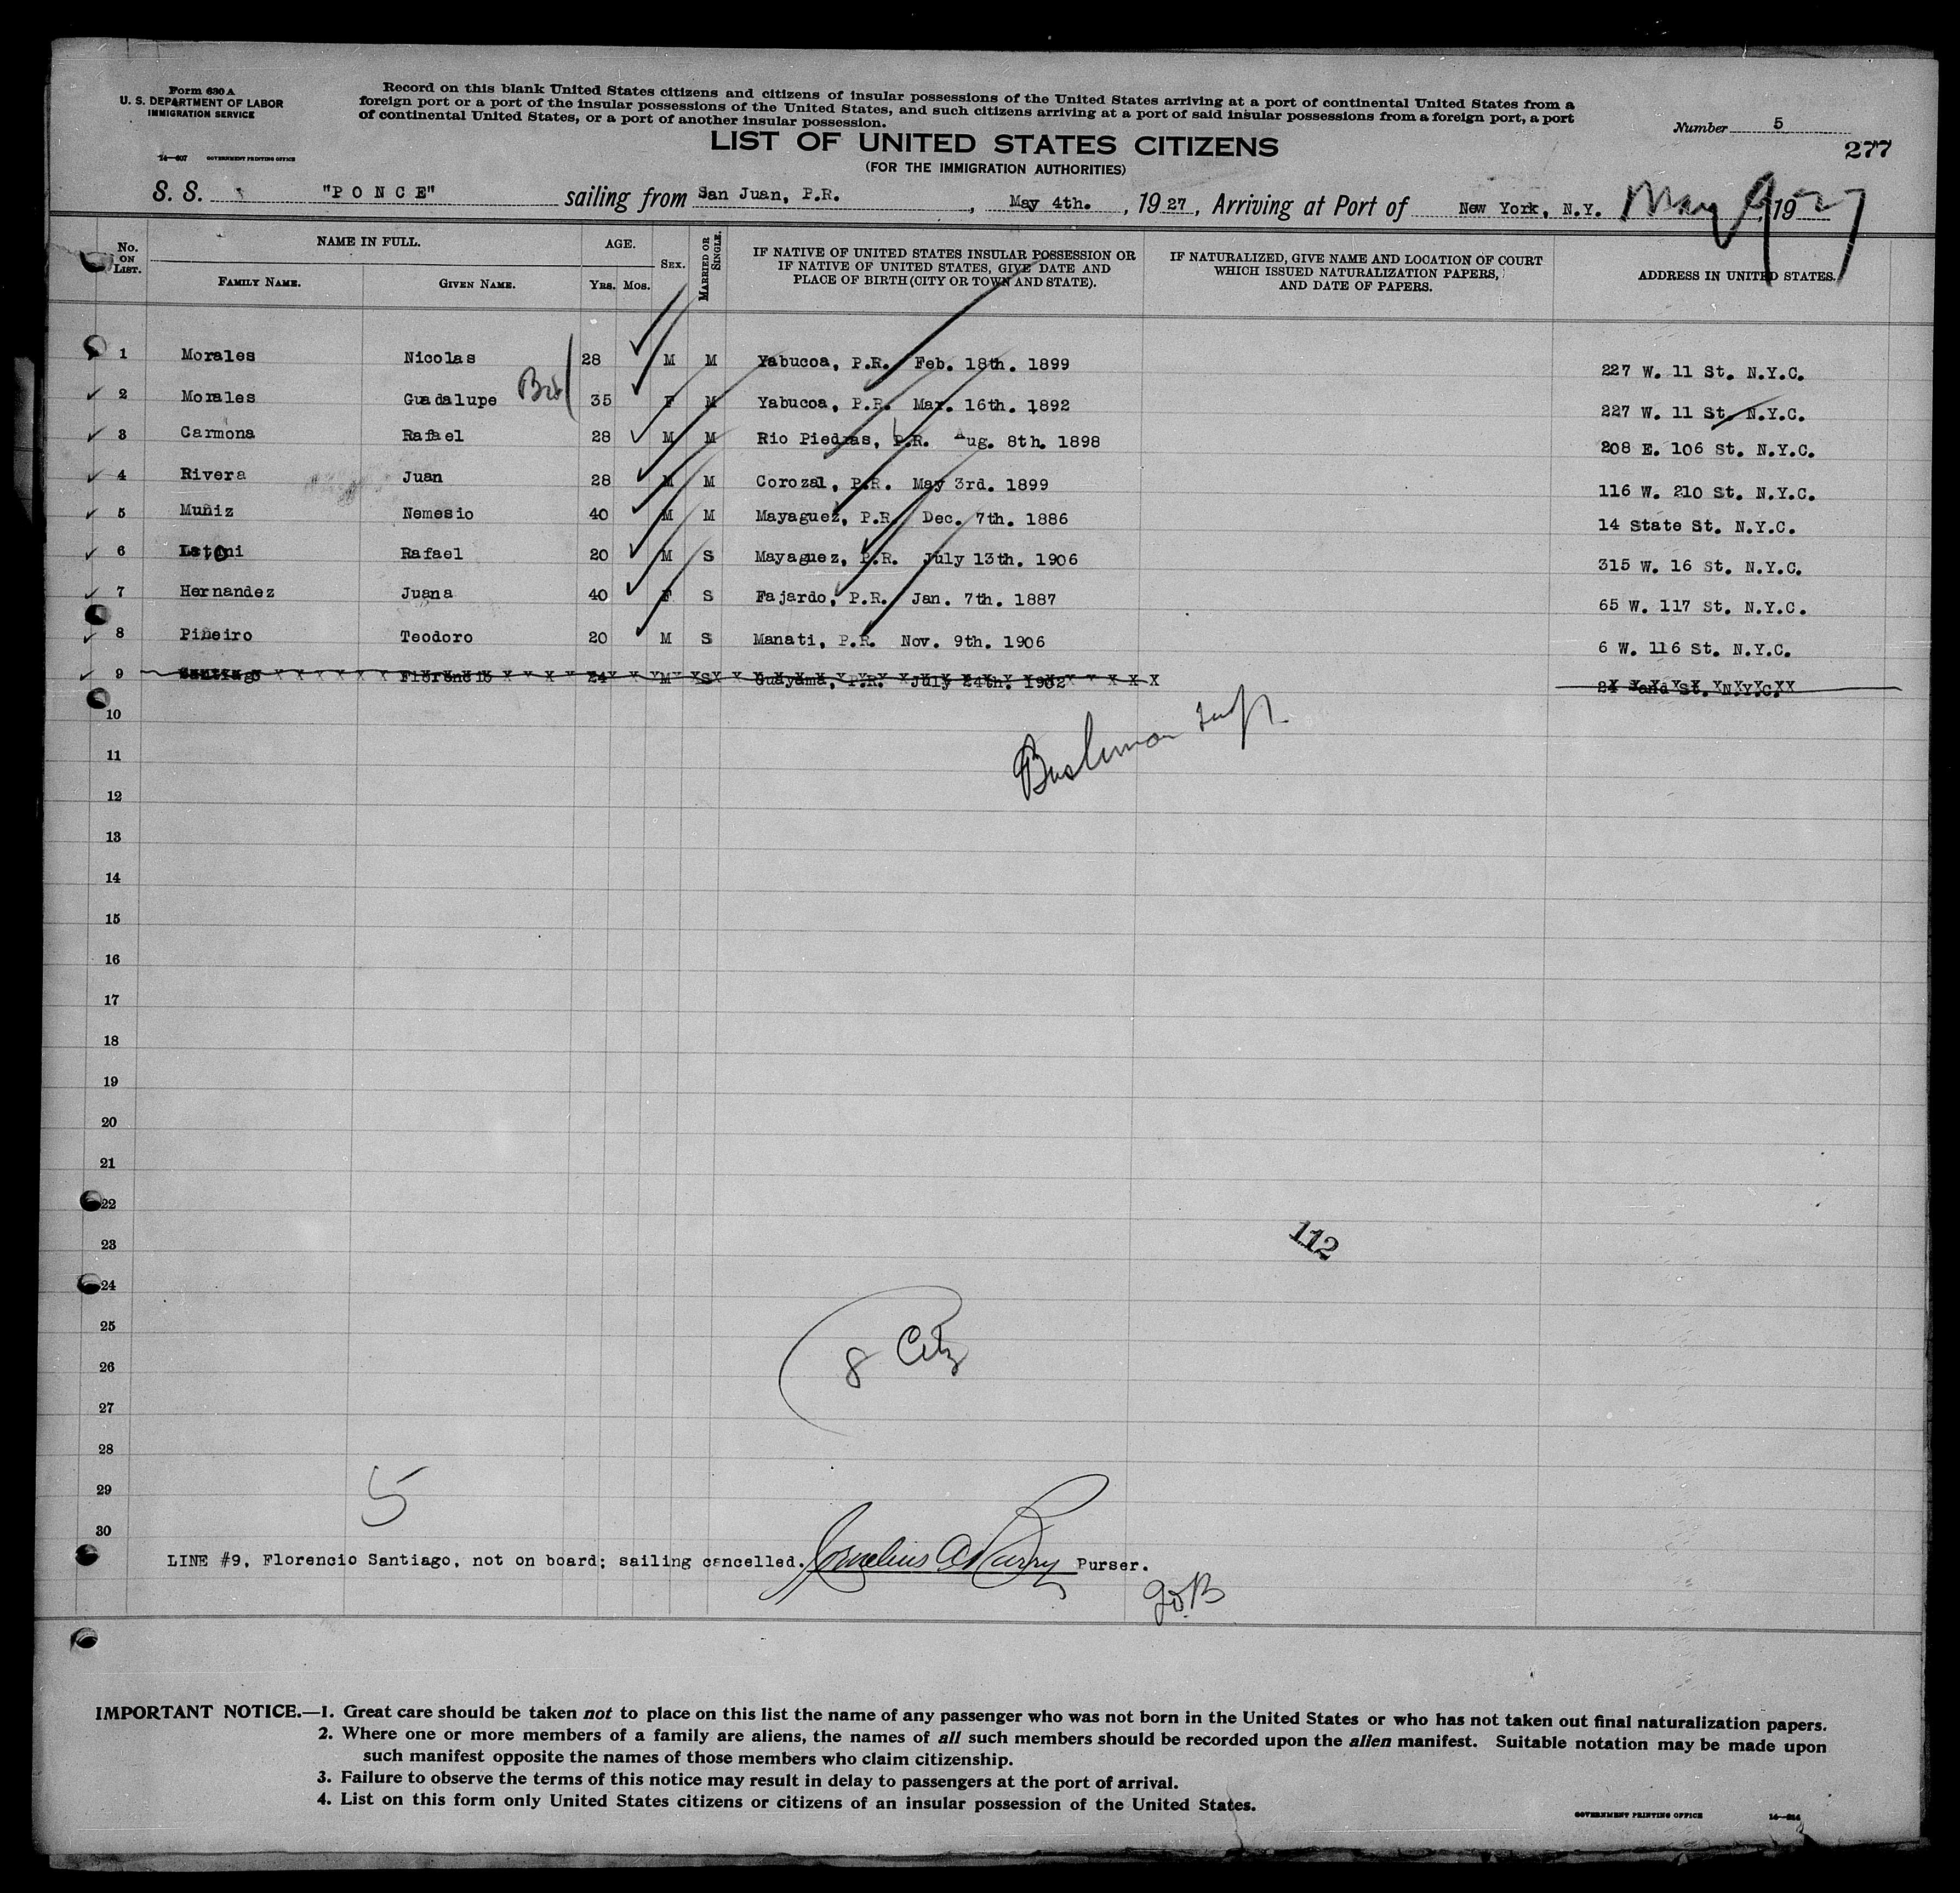 Form 630 A
U. S. DEPARTMENT OF LABOR
IMMIGRATION SERVICE
14—607 GOVERNMENT PRINTING OFFICE
Record on this blank United States citizens and citizens of insular possessions of the United States arriving at a port of continental United States from a
foreign port or a port of the insular possessions of the United States, and such citizens arriving at a port of said insular possessions from a foreign port, a port
of continental United States, or a port of another insular possession.
Number 5
277
LIST OF UNITED STATES CITIZENS
(FOR THE IMMIGRATION AUTHORITIES)
S. S. "PONCE" sailing from San Juan, P.R., May 4th., 1927, Arriving at Port of New York, N.Y. May 9, 1927
No. ON LIST. NAME IN FULL. FAMILY NAME. GIVEN NAME. AGE. YRS. MOS. SEX. MARRIED OR SINGLE. IF NATIVE OF UNITED STATES INSULAR POSSESSION OR IF NATIVE OF UNITED STATES, GIVE DATE AND PLACE OF BIRTH (CITY OR TOWN AND STATE). IF NATURALIZED, GIVE NAME AND LOCATION OF COURT WHICH ISSUED NATURALIZATION PAPERS, AND DATE OF PAPERS. ADDRESS IN UNITED STATES.
1 Morales Nicolas 28 M M Yabucoa, P.R. Feb. 18th. 1899 227 W. 11 St. N.Y.C.
2 Morales Guadalupe 35 F M Yabucoa, P.R. Mar. 16th. 1892 227 W. 11 St. N.Y.C.
3 Carmona Rafael 28 M M Rio Piedras, P.R. Aug. 8th. 1898 208 E. 106 St. N.Y.C.
4 Rivera Juan 28 M M Corozal, P.R. May 3rd. 1899 116 W. 210 St. N.Y.C.
5 Muñiz Nemesio 40 M M Mayaguez, P.R. Dec. 7th. 1886 14 State St. N.Y.C.
6 Rafael 20 M S Mayaguez, P.R. July 13th. 1906 315 W. 16 St. N.Y.C.
7 Hernandez Juana 40 F S Fajardo, P.R. Jan. 7th. 1887 65 W. 117 St. N.Y.C.
8 Piñeiro Teodoro 20 M S Manati, P.R. Nov. 9th. 1906 6 W. 116 St. N.Y.C.
9 Santiago Florencio 24 M S Guayama, P.R. July 24th. 1902 St. N.Y.C.
10
11
12
13
14
15
16
17
18
19
20
21
22
23
112
24
25
8 Citz
26
27
28
29
5
30
LINE #9, Florencio Santiago, not on board; sailing cancelled. Purser.
IMPORTANT NOTICE.—1. Great care should be taken not to place on this list the name of any passenger who was not born in the United States or who has not taken out final naturalization papers.
2. Where one or more members of a family are aliens, the names of all such members should be recorded upon the alien manifest. Suitable notation may be made upon
such manifest opposite the names of those members who claim citizenship.
3. Failure to observe the terms of this notice may result in delay to passengers at the port of arrival.
4. List on this form only United States citizens or citizens of an insular possession of the United States.
GOVERNMENT PRINTING OFFICE